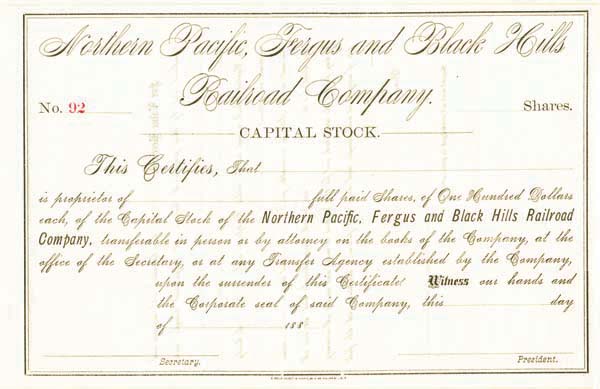 Northern Pacific, Fergus and Black Hills
Railroad Company.
No. 92 Shares.
CAPITAL STOCK.
This Certifies, That
is proprietor of full paid Shares, of One Hundred Dollars
each, of the Capital Stock of the Northern Pacific, Fergus and Black Hills Railroad
Company, transferable in person or by attorney on the books of the Company, at the
office of the Secretary, or at any Transfer Agency established by the Company,
upon the surrender of this Certificate. Witness our hands and
the Corporate seal of said Company, this day
of 188
Secretary. President.